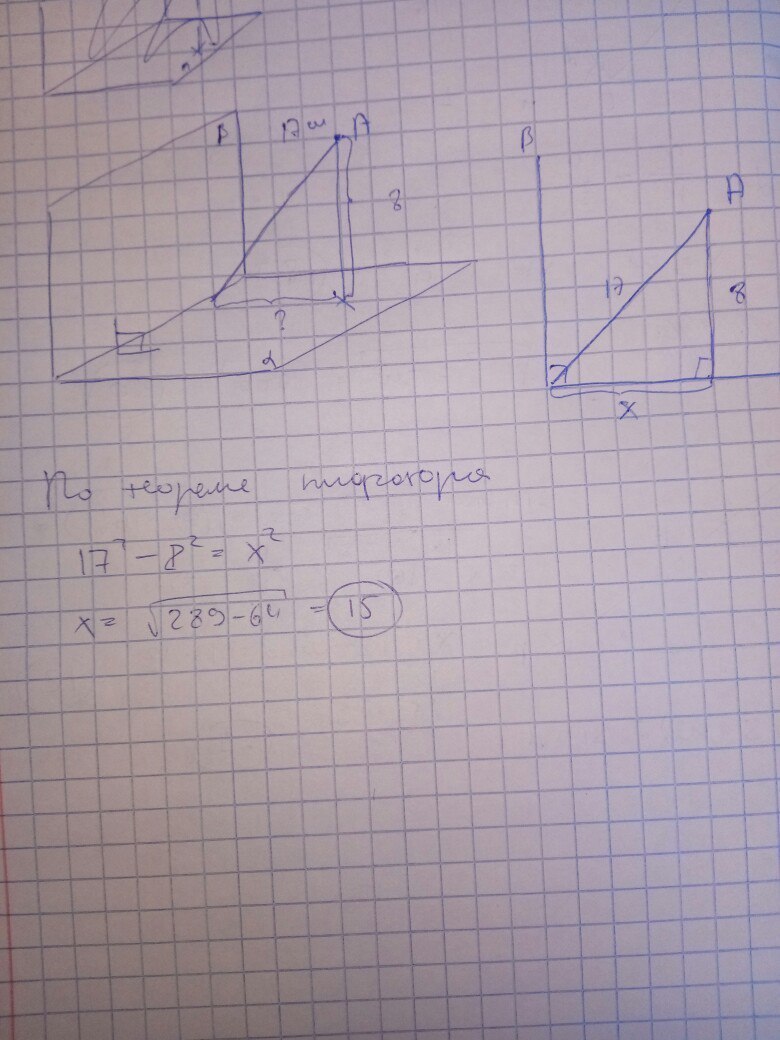 β 17см A
8
?
α
β
A
17
8
x
По теореме пифагора
17² - 8² = x²
x = √289-64 = 15